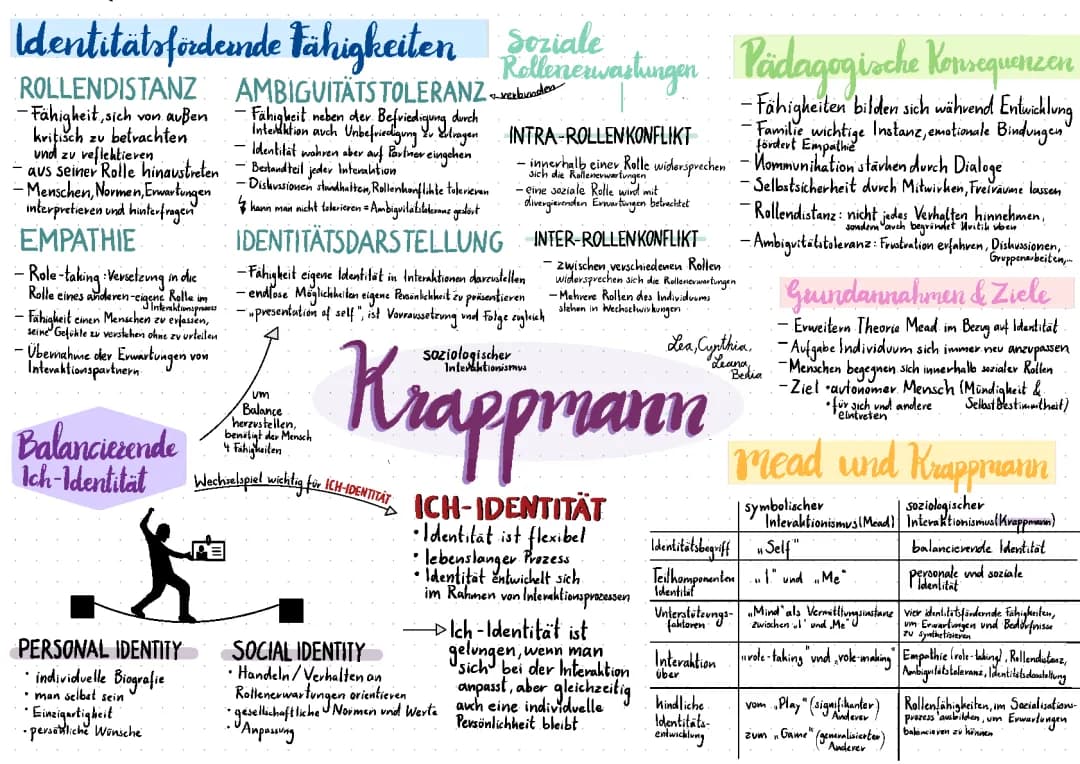 Identitätsfördernde Fähigkeiten
ROLLENDISTANZ
- Fähigkeit, sich von außen
kritisch zu betrachten
und zu reflektieren
- aus seiner Rolle hinaustreten
- Menschen, Normen, Erwartungen
interpretieren und hinterfragen
AMBIGUITÄTSTOLERANZ
- Fähigkeit neben der Befriedigung durch
Interaktion auch Unbefriedigung zu ertragen
- Identität wahren aber auf Partner eingehen
- Bestandteil jeder Interaktion
- Diskussionen standhalten, Rollenkonflikte tolerieren
kann man nicht tolerieren = Ambiguitätstoleranz gestört
EMPATHIE
- Role-taking: Versetzung in die
Rolle eines anderen - eigene Rolle im
Interaktionsprozess
- Fähigkeit einen Menschen zu erfassen,
seine Gefühle zu verstehen ohne zu urteilen
- Übernahme der Erwartungen von
Interaktionspartnern
IDENTITÄTSDARSTELLUNG
- Fähigkeit eigene Identität in Interaktionen darzustellen
- endlose Möglichkeiten eigene Persönlichkeit zu präsentieren
- "presentation of self", ist Vorraussetzung und Folge zugleich
Soziale
Rollenerwartungen
verbunden
INTRA-ROLLENKONFLIKT
- innerhalb einer Rolle widersprechen
sich die Rollenerwartungen
- eine soziale Rolle wird mit
divergierenden Erwartungen betrachtet
INTER-ROLLENKONFLIKT
- zwischen verschiedenen Rollen
widersprechen sich die Rollenerwartungen
- Mehrere Rollen des Individuums
stehen in Wechselwirkungen
Pädagogische Konsequenzen
- Fähigkeiten bilden sich während Entwicklung
- Familie wichtige Instanz, emotionale Bindungen
fördert Empathie
- Kommunikation stärken durch Dialoge
- Selbstsicherheit durch Mitwirken, Freiräume lassen
- Rollendistanz: nicht jedes Verhalten hinnehmen,
sondern auch begründet Kritik üben
- Ambiguitätstoleranz: Frustration erfahren, Diskussionen,
Gruppenarbeiten,...
Grundannahmen & Ziele
- Erweitern Theorie Mead im Bezug auf Identität
- Aufgabe Individuum sich immer neu anzupassen
- Menschen begegnen sich innerhalb sozialer Rollen
- Ziel • autonomer Mensch (Mündigkeit &
Selbstbestimmtheit)
• für sich und andere
eintreten
Lea, Cynthia,
Leana,
Bedia
soziologischer
Interaktionismus
Krappmann
um
Balance
herzustellen,
benötigt der Mensch
4 Fähigkeiten
Balancierende
Ich-Identität
Wechselspiel wichtig für ICH-IDENTITÄT
PERSONAL IDENTITY
• individuelle Biografie
• man selbst sein
• Einzigartigkeit
• persönliche Wünsche
SOCIAL IDENTITY
• Handeln/Verhalten an
Rollenerwartungen orientieren
• gesellschaftliche Normen und Werte
• Anpassung
ICH-IDENTITÄT
• Identität ist flexibel
• lebenslanger Prozess
• Identität entwickelt sich
im Rahmen von Interaktionsprozessen
Ich-Identität ist
gelungen, wenn man
sich bei der Interaktion
anpasst, aber gleichzeitig
auch eine individuelle
Persönlichkeit bleibt
Mead und Krappmann
symbolischer
Interaktionismus (Mead)
soziologischer
Interaktionismus (Krappmann)
Identitätsbegriff
„Self"
balancierende Identität
Teilkomponenten
Identität
„I" und „Me"
personale und soziale
Identität
Unterstützungs-
faktoren
„Mind" als Vermittlungsinstanz
zwischen „I" und „Me"
vier identitätsfördernde Fähigkeiten,
um Erwartungen und Bedürfnisse
zu synthetisieren
Interaktion
über
„role-taking" und „role-making"
Empathie (role-taking), Rollendistanz,
Ambiguitätstoleranz, Identitätsdarstellung
kindliche
Identitäts-
entwicklung
vom „Play" (signifikanter)
Anderer
zum „Game" (generalisierter)
Anderer
Rollenfähigkeiten, im Sozialisations-
prozess ausbilden, um Erwartungen
balancieren zu können